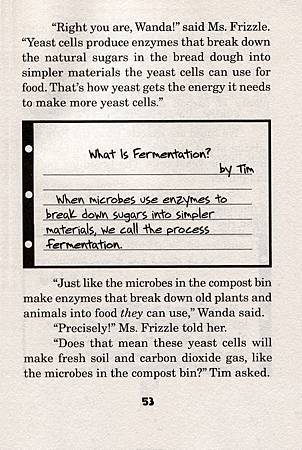 "Right you are, Wanda!" said Ms. Frizzle.
"Yeast cells produce enzymes that break down
the natural sugars in the bread dough into
simpler materials the yeast cells can use for
food. That's how yeast gets the energy it needs
to make more yeast cells."
What Is Fermentation?
by Tim
When microbes use enzymes to
break down sugars into simpler
materials, we call the process
fermentation.
"Just like the microbes in the compost bin
make enzymes that break down old plants and
animals into food they can use," Wanda said.
"Precisely!" Ms. Frizzle told her.
"Does that mean these yeast cells will
make fresh soil and carbon dioxide gas, like
the microbes in the compost bin?" Tim asked.
53